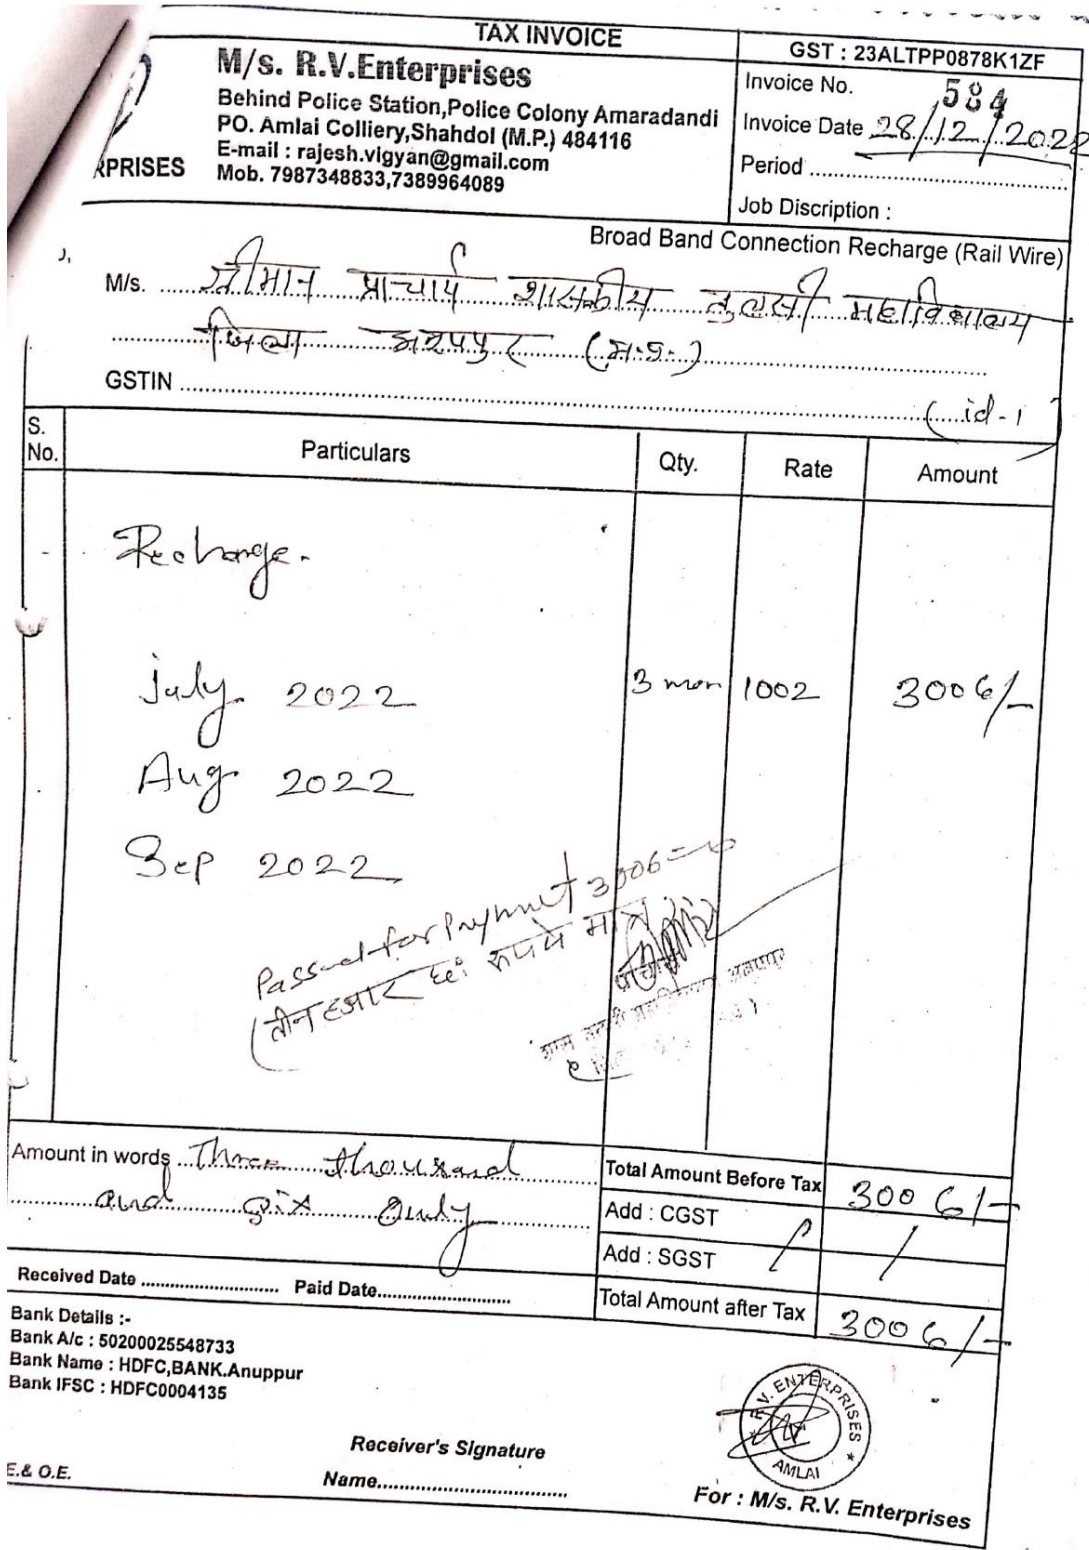 TAX INVOICE
GST : 23ALTPP0878K1ZF
M/s. R.V.Enterprises
Behind Police Station,Police Colony Amaradandi
PO. Amlai Colliery,Shahdol (M.P.) 484116
E-mail : rajesh.vigyan@gmail.com
Mob. 7987348833,7389964089
RPRISES
Invoice No. 584
Invoice Date 28/12/2022
Period
Job Discription :
Broad Band Connection Recharge (Rail Wire)
M/s. श्रीमान प्राचार्य शासकीय तुलसी महाविद्यालय
जिला अनूपपुर (म.प्र.)
GSTIN
(id-1
S. No. Particulars Qty. Rate Amount
Recharge.
July 2022 3 mon 1002 3006/-
Aug 2022
Sep 2022
Passed for Payment 3006=00
(तीन हजार छः रुपये मात्र
प्राचार्य
Amount in words Three thousand
and six Only
Total Amount Before Tax 3006/-
Add : CGST /
Add : SGST /
Total Amount after Tax 3006/-
Received Date Paid Date
Bank Details :-
Bank A/c : 50200025548733
Bank Name : HDFC,BANK.Anuppur
Bank IFSC : HDFC0004135
Receiver's Signature
Name
E.& O.E.
R.V. ENTERPRISES
AMLAI
For : M/s. R.V. Enterprises